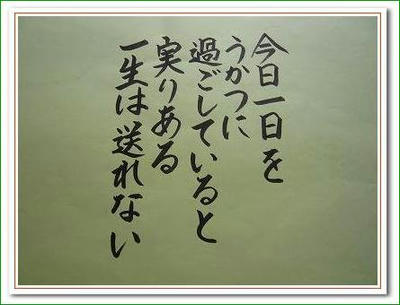 今日一日を
うかつに
過ごしていると
実りある
一生は送れない